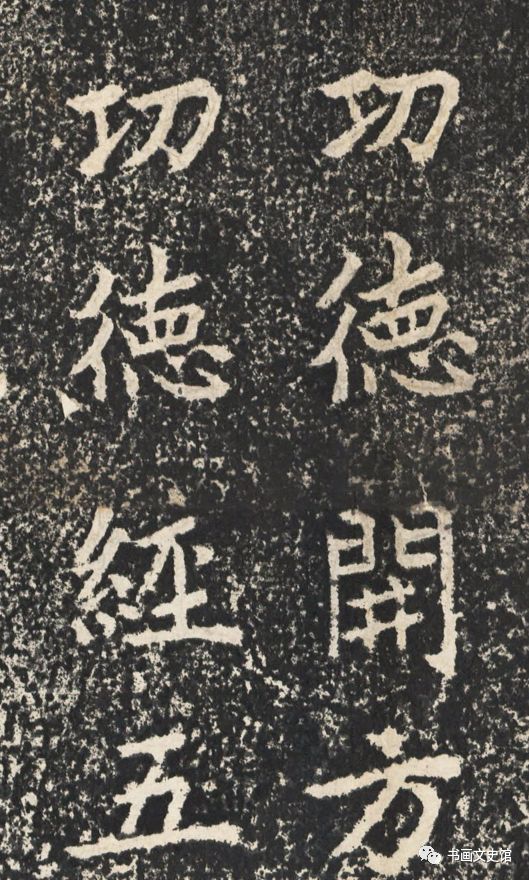 功德開方
功德經五
书画文史馆